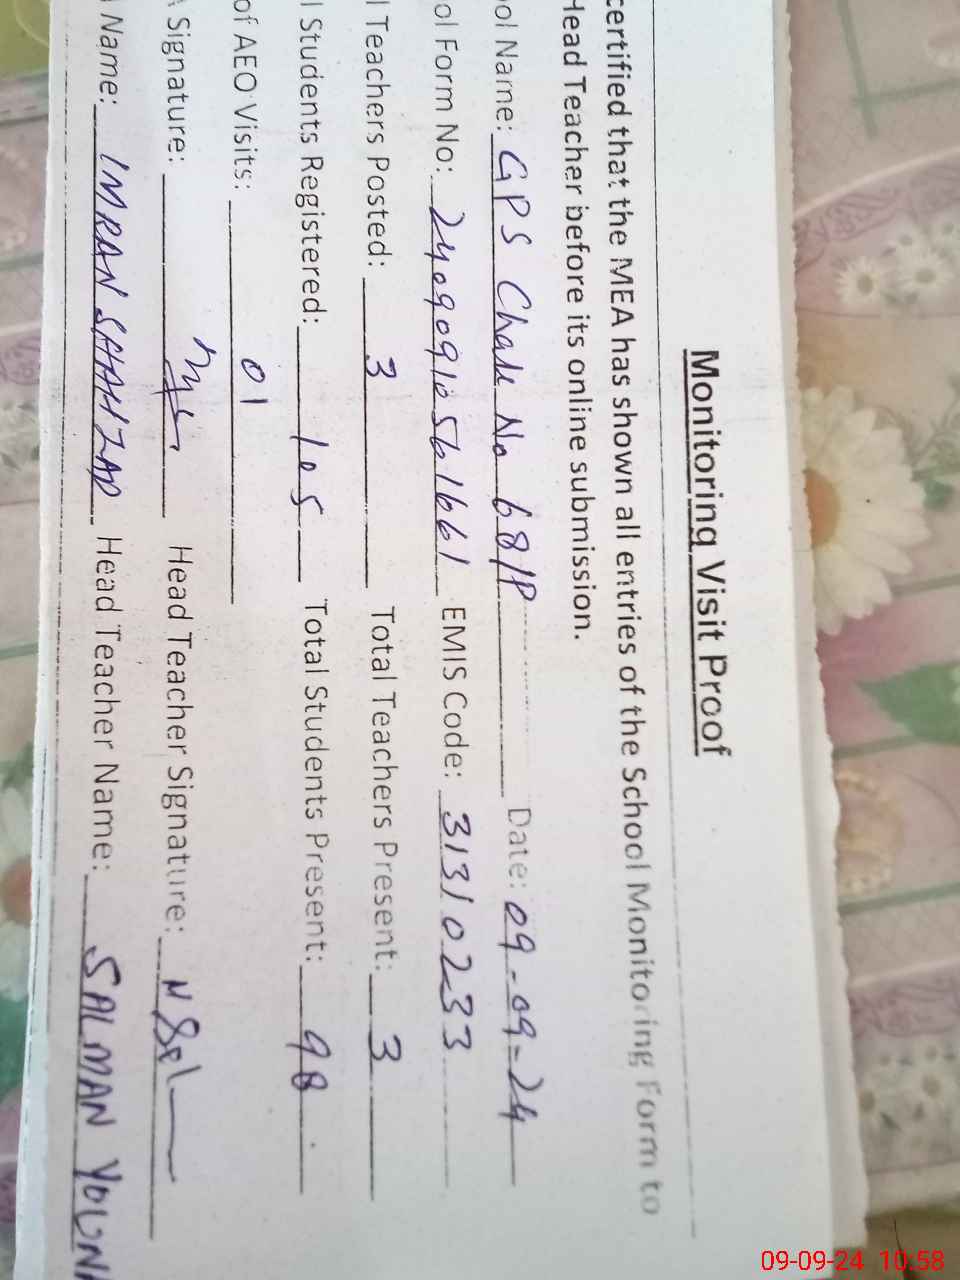 Monitoring Visit Proof
certified that the MEA has shown all entries of the School Monitoring Form to
Head Teacher before its online submission.
ol Name: GPS Chak No 68/P Date: 09-09-24
ol Form No: 24090910561661 EMIS Code: 31310233
l Teachers Posted: 3 Total Teachers Present: 3
l Students Registered: 105 Total Students Present: 98
of AEO Visits: 01
A Signature: Head Teacher Signature:
l Name: IMRAN SHAHZAD Head Teacher Name: SALMAN YOUN
09-09-24 10:58